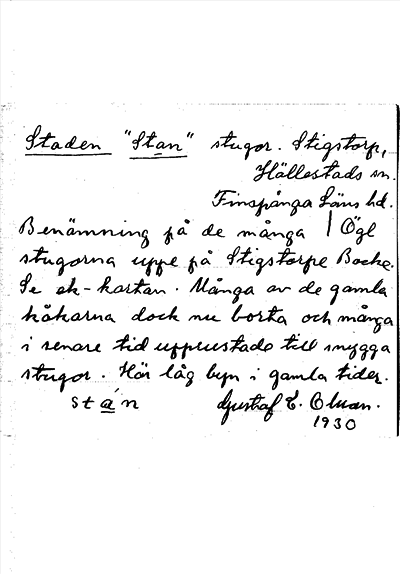 Staden "Stan" stugor. Stigstorp,
Hällestads sn.
Finspånga Läns hd.
Benämning på de många | Ögl
stugorna uppe på Stigstorps Backe.
Se ek-kartan. Många av de gamla
kåkarna dock nu borta och många
i senare tid upprustade till snygga
stugor. Här låg byn i gamla tider.
stán Gustaf E. Olsson.
1930